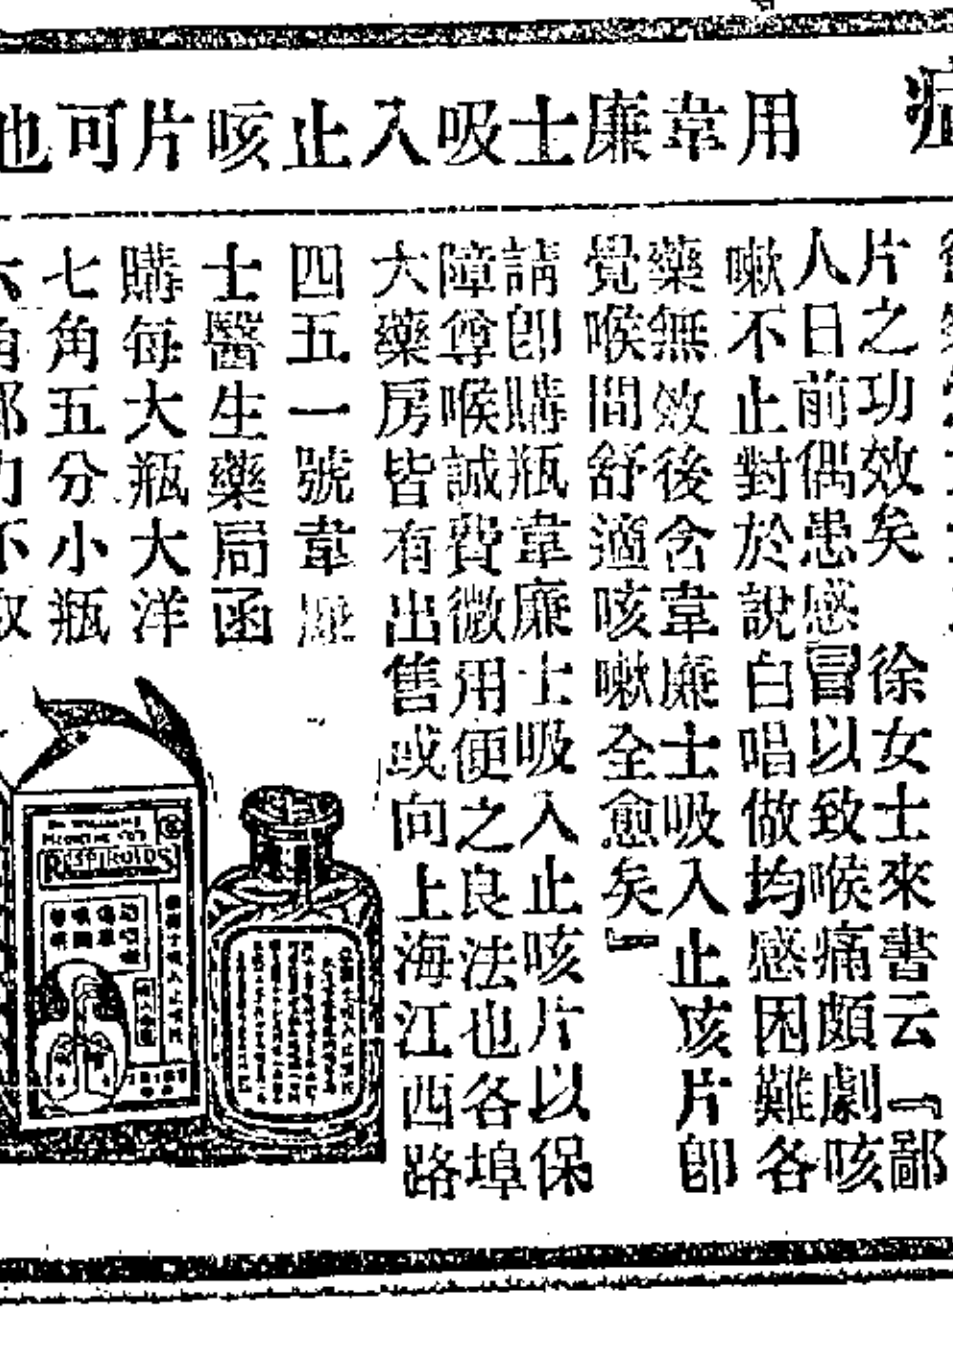 用韋廉士吸入止咳片可也
片之功效矣　徐女士來書云『鄙
人日前偶患感冒以致喉痛頗劇咳
嗽不止對於說白唱做均感困難各
藥無效後含韋廉士吸入止咳片即
覺喉間舒適咳嗽全愈矣』
請即購瓶韋廉士吸入止咳片以保
障尊喉誠費微用便之良法也各埠
大藥房皆有出售或向上海江西路
四五一號韋廉
士醫生藥局函
購每大瓶大洋
七角五分小瓶
DR. WILLIAMS'
MEDICINE CO'S
RESPIROIDS